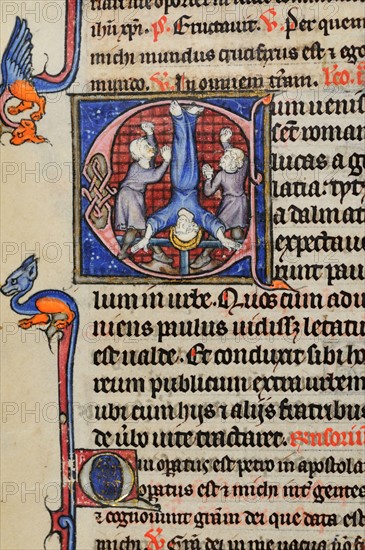 ihu xpi. ℟. Eructauit. ℣. Per quem
michi mundus crucifixus est & ego
mundo. ℣. In omnem tram. Leo.
Cum uenis
sēt romam
lucas a g
latia: tyt
a dalmat
expectaue
runt pau
lum in urbe. Quos cum adu
niens paulus uidissz letatu
est ualde. Et conduxit sibi ho
reum publicum extra urbem
ubi cum hijs & alijs fratribus
de ubo uite tractaret.
Qui opatus est petro in apostola
opatus est & michi int gentes
& cognouit gram dei que data es
michi